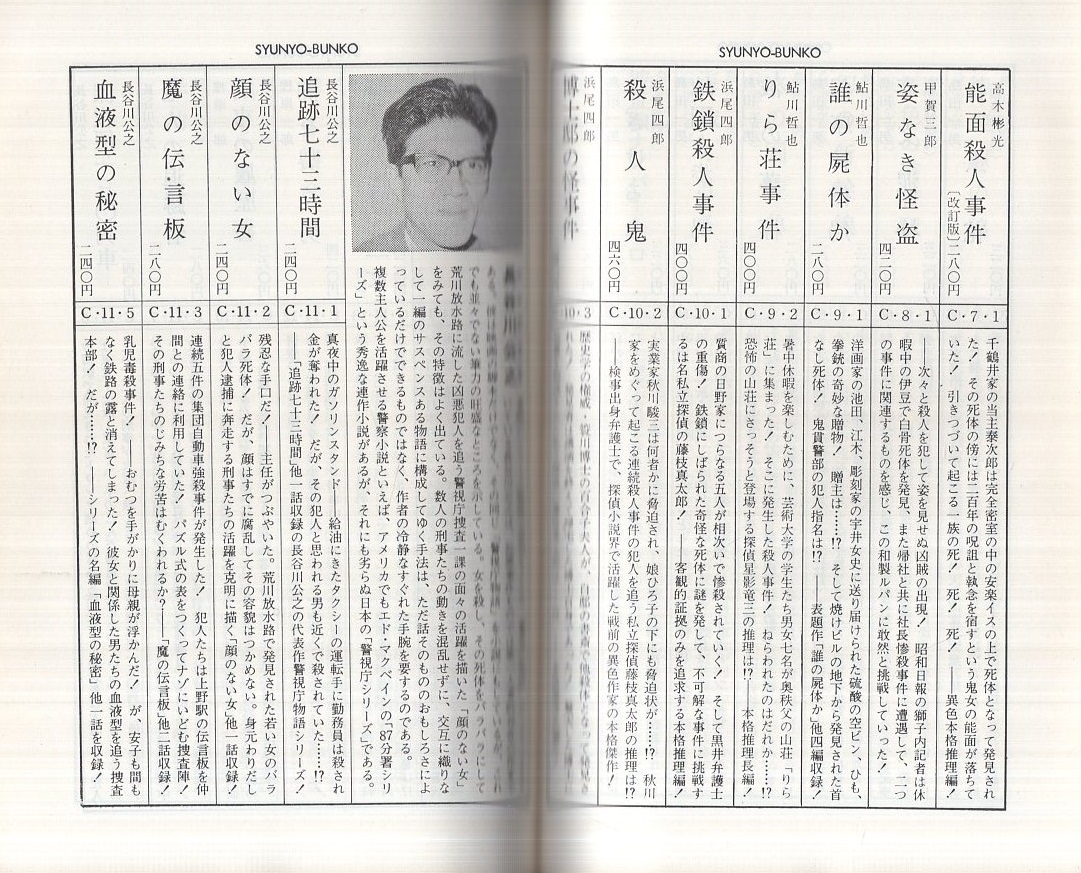 SYUNYO-BUNKO
高木彬光
能面殺人事件
〔改訂版〕二八〇円
C・7・1
千鶴井家の当主泰次郎は完全密室の中の安楽イスの上で死体となって発見され
た！　その死体の傍には二百年の呪詛と執念を宿すという鬼女の能面が落ちて
いた！　引きつづいて起こる一族の死！　死！　死！　――異色本格推理編！
甲賀三郎
姿なき怪盗
四二〇円
C・8・1
――次々と殺人を犯して姿を見せぬ凶賊の出現！　昭和日報の獅子内記者は休
暇中の伊豆で白骨死体を発見、また帰社と共に社長惨殺事件に遭遇して、二つ
の事件に関連するものを感じ、この和製ルパンに敢然と挑戦していった！
鮎川哲也
誰の屍体か
二八〇円
C・9・1
洋画家の池田、江木、彫刻家の宇井女史に送り届けられた硫酸の空ビン、ひも、
拳銃の奇妙な贈物！　贈主は……!?　そして焼けビルの地下から発見された首
なし死体！　鬼貫警部の犯人指名は!?　表題作「誰の屍体か」他四編収録！
鮎川哲也
りら荘事件
C・9・2
暑中休暇を楽しむために、芸術大学の学生たち男女七名が奥秩父の山荘「りら
荘」に集まった！　そこに発生した殺人事件！　ねらわれたのはだれか……!?
恐怖の山荘にさっそうと登場する探偵星影竜三の推理は!?――本格推理長編！
浜尾四郎
鉄鎖殺人事件
四〇〇円
C・10・1
質商の日野家につらなる五人が相次いで惨殺されていく！　そして黒井弁護士
の重傷！　鉄鎖にしばられた奇怪な死体に謎を発して、不可解な事件に挑戦す
るは名私立探偵の藤枝真太郎！　――客観的証拠のみを追求する本格推理編！
浜尾四郎
殺人鬼
四六〇円
C・10・2
実業家秋川駿三は何者かに脅迫され、娘ひろ子の下にも脅迫状が……!?　秋川
家をめぐって起こる連続殺人事件の犯人を追う私立探偵藤枝真太郎の推理は!?
――検事出身弁護士で、探偵小説界で活躍した戦前の異色作家の本格傑作！
浜尾四郎
博士邸の怪事件
10・3
SYUNYO-BUNKO
でも並々でない筆力の旺盛なところを示している。女を殺し、その死体をバラバラにして
荒川放水路に流した凶悪犯人を追う警視庁捜査一課の面々の活躍を描いた「顔のない女」
をみても、その特徴はよく出ている。数人の刑事たちの動きを混乱せずに、交互に織りな
して一編のサスペンスある物語に構成してゆく手法は、ただ話そのもののおもしろさによ
っているだけでできるものではなく、作者の冷静なすぐれた手腕を要するのである。
複数主人公を活躍させる警察小説といえば、アメリカでもエド・マクベインの「87分署シリ
ーズ」という秀逸な連作小説があるが、それにも劣らぬ日本の「警視庁シリーズ」である。
長谷川公之
追跡七十三時間
二四〇円
C・11・1
真夜中のガソリンスタンド――給油にきたタクシーの運転手に勤務員は殺され
金が奪われた！　だが、その犯人と思われる男も近くで殺されていた……!?
――「追跡七十三時間」他一話収録の長谷川公之の代表作警視庁物語シリーズ！
長谷川公之
顔のない女
二四〇円
C・11・2
残忍な手口だ！――主任がつぶやいた。荒川放水路で発見された若い女のバラ
バラ死体！　だが、顔はすでに腐乱してその容貌はつかめない。身元わりだし
と犯人逮捕に奔走する刑事たちの活躍を克明に描く「顔のない女」他一話収録！
長谷川公之
魔の伝言板
二八〇円
C・11・3
連続五件の集団自動車強殺事件が発生した！　犯人たちは上野駅の伝言板を仲
間との連絡に利用していた！　パズル式の表をつくってナゾにいどむ捜査陣！
その刑事たちのじみちな労苦はむくわれるか？　「魔の伝言板」他二話収録！
長谷川公之
血液型の秘密
二四〇円
C・11・5
乳児毒殺事件！　――おむつを手がかりに母親が浮かんだ！　が、安子も間も
なく鉄路の露と消えてしまった！　彼女と関係した男たちの血液型を追う捜査
本部！　だが……!?　――シリーズの名編「血液型の秘密」他一話を収録！